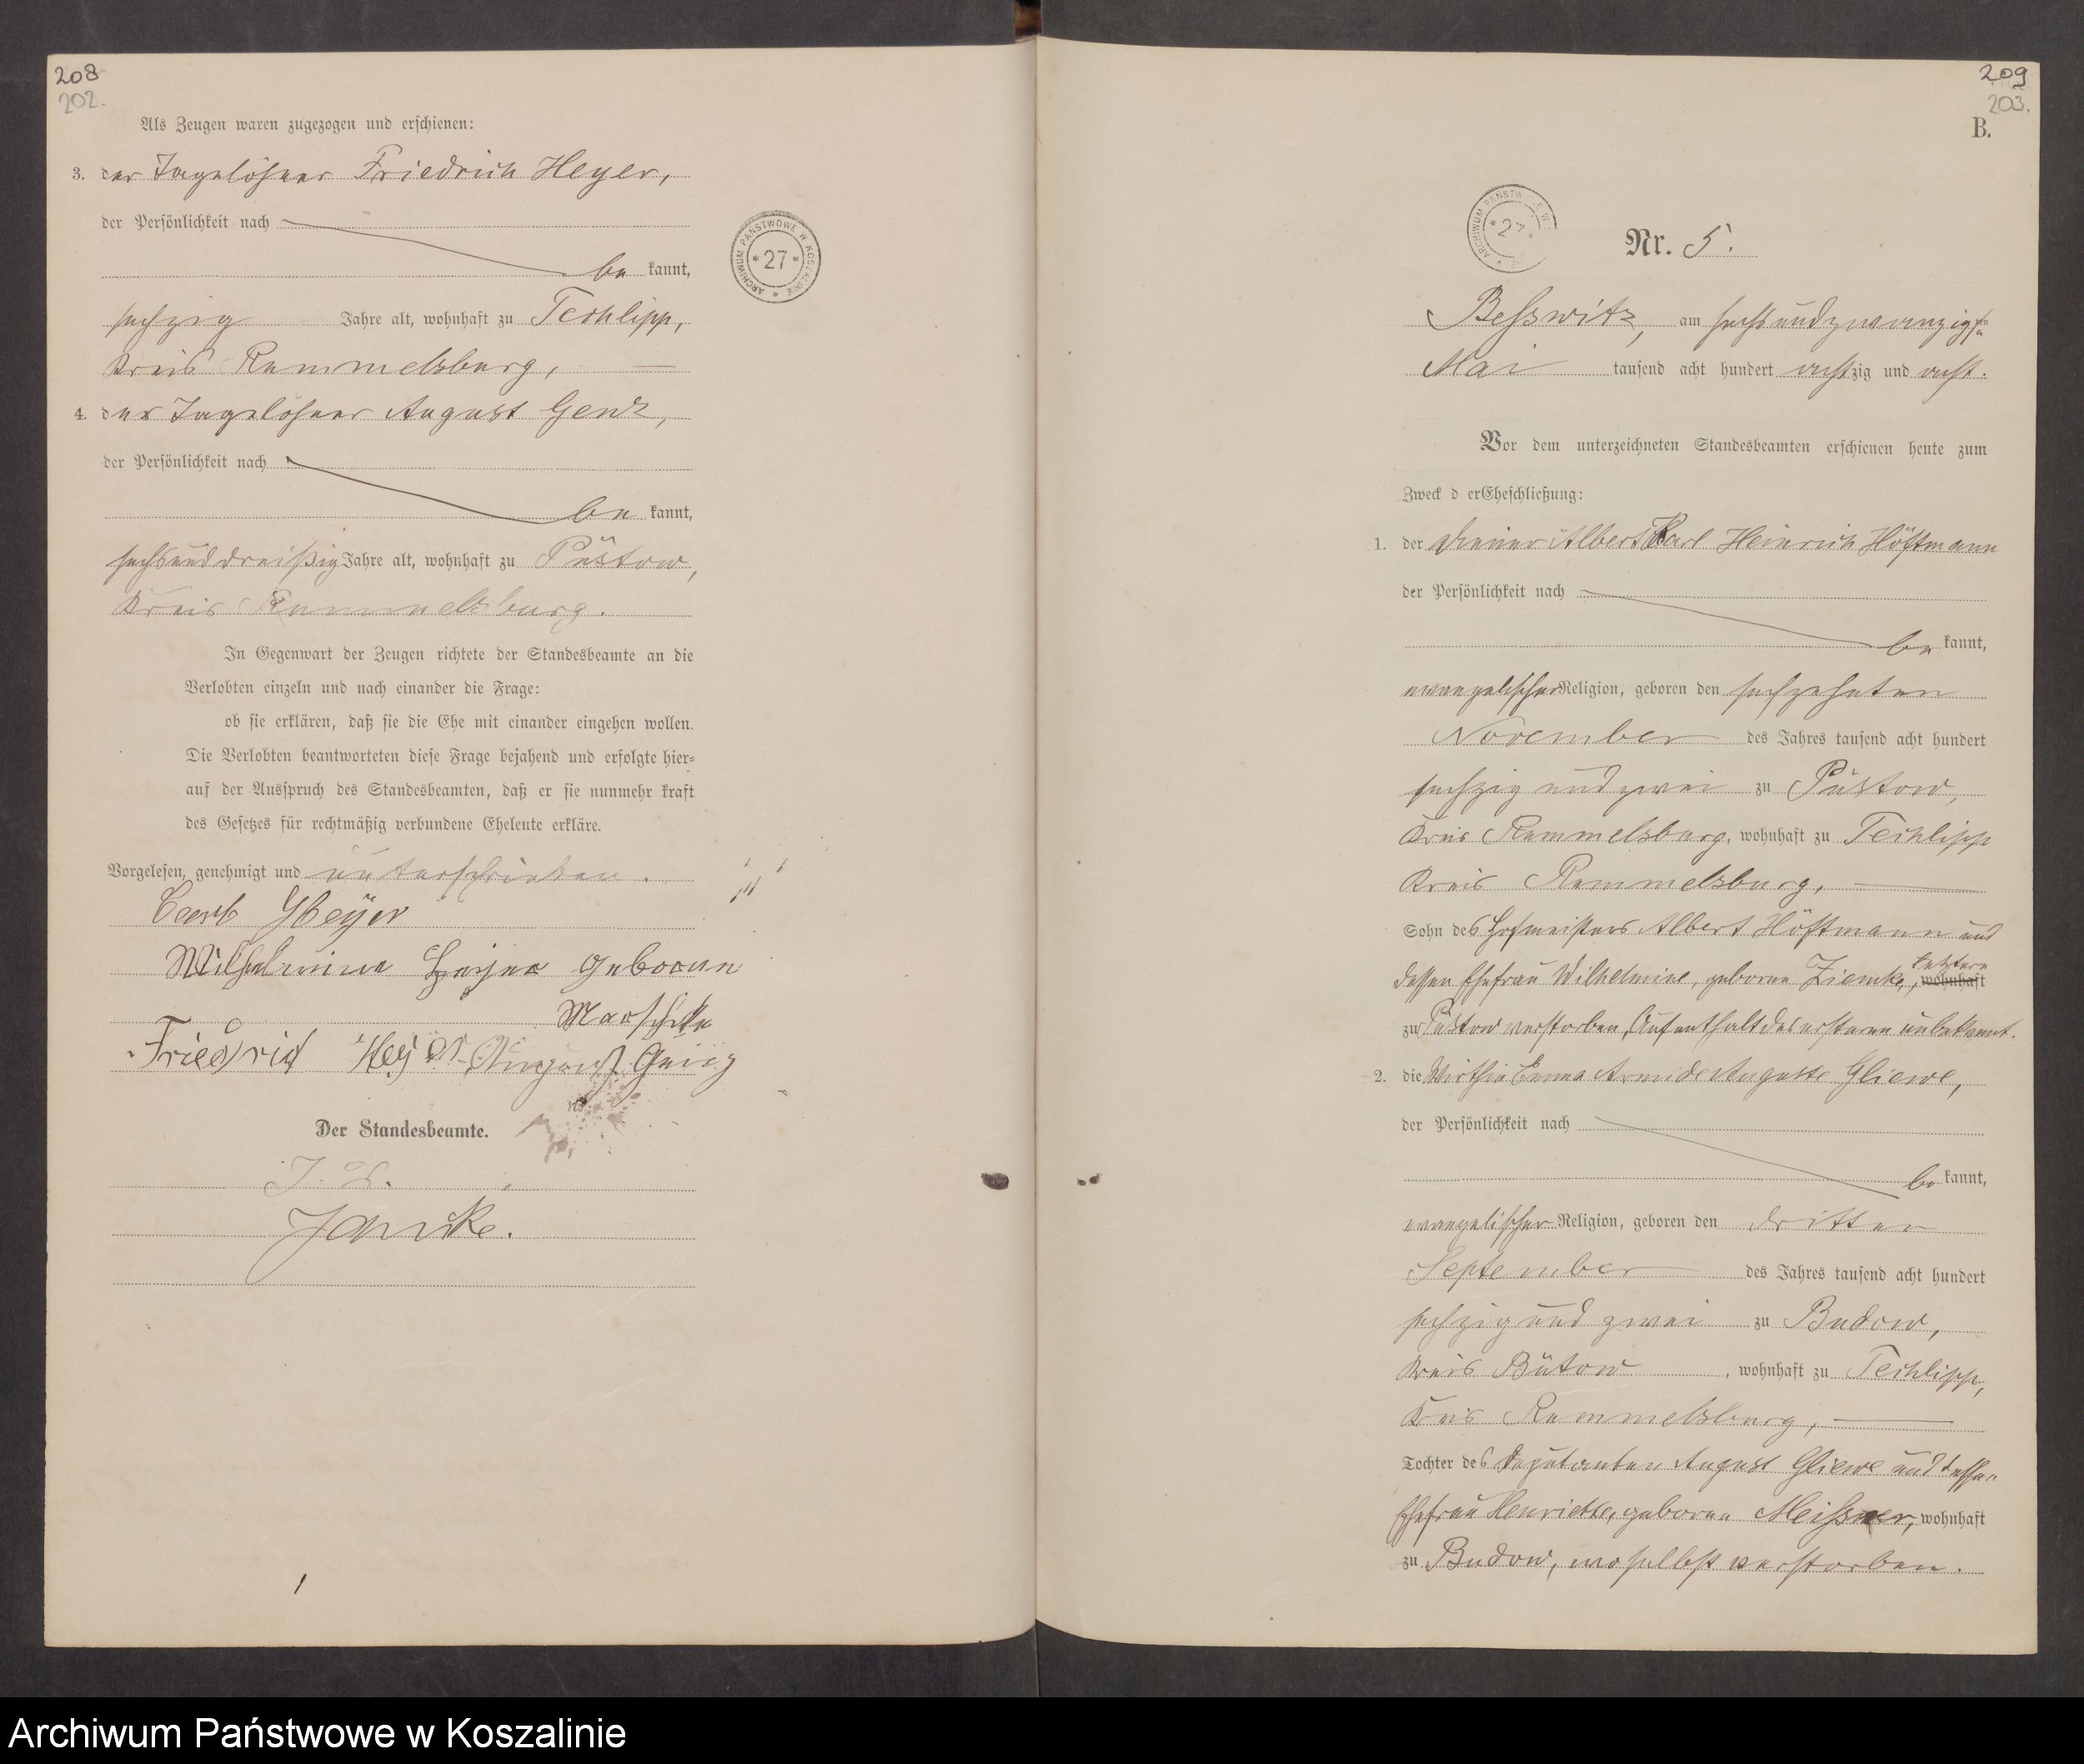 208
202.
Als Zeugen waren zugezogen und erschienen:
3. der Tagelöhner Friedrich Heyer,
der Persönlichkeit nach
be kannt,
sechzig Jahre alt, wohnhaft zu Techlipp,
Kreis Rummelsburg,
4. der Tagelöhner August Genz,
der Persönlichkeit nach
be kannt,
sechsunddreißig Jahre alt, wohnhaft zu Püstow,
Kreis Rummelsburg.
In Gegenwart der Zeugen richtete der Standesbeamte an die
Verlobten einzeln und nach einander die Frage:
ob sie erklären, daß sie die Ehe mit einander eingehen wollen.
Die Verlobten beantworteten diese Frage bejahend und erfolgte hier=
auf der Ausspruch des Standesbeamten, daß er sie nunmehr kraft
des Gesetzes für rechtmäßig verbundene Eheleute erkläre.
Vorgelesen, genehmigt und unterschrieben.
Heÿer
Wilhelmine Heijer geborene
Friedrich Heyer August
Der Standesbeamte.
Jancke.
ARCHIWUM PAŃSTWOWE W KOSZALINIE
* 27 *
209
203.
B.
ARCHIWUM PAŃSTW
* 27 *
Nr. 5.
Besswitz, am sechsundzwanzigsten
Mai tausend acht hundert achtzig und acht.
Vor dem unterzeichneten Standesbeamten erschienen heute zum
Zweck d erEheschließung:
1. der Diener Albert Karl Heinrich Höftmann
der Persönlichkeit nach
be kannt,
evangelischer Religion, geboren den sechzehnten
November des Jahres tausend acht hundert
sechzig und zwei zu Püstow,
Kreis Rummelsburg, wohnhaft zu Techlipp
Kreis Rummelsburg,
Sohn des Hofmeisters Albert Höftmann und
dessen Ehefrau Wilhelmine, geborene Ziemke, letztere wohnhaft
zu Püstow verstorben, Aufenthalt des ersteren unbekannt.
2. die Wirthin Emma Armide Auguste Gliewe,
der Persönlichkeit nach
be kannt,
evangelischer Religion, geboren den dritten
September des Jahres tausend acht hundert
sechzig und zwei zu Budow,
Kreis Bütow, wohnhaft zu Techlipp,
Kreis Rummelsburg,
Tochter des Deputanten August Gliewe und dessen
Ehefrau Henriette, geborene Meißner, wohnhaft
zu Budow, woselbst verstorben.
Archiwum Państwowe w Koszalinie